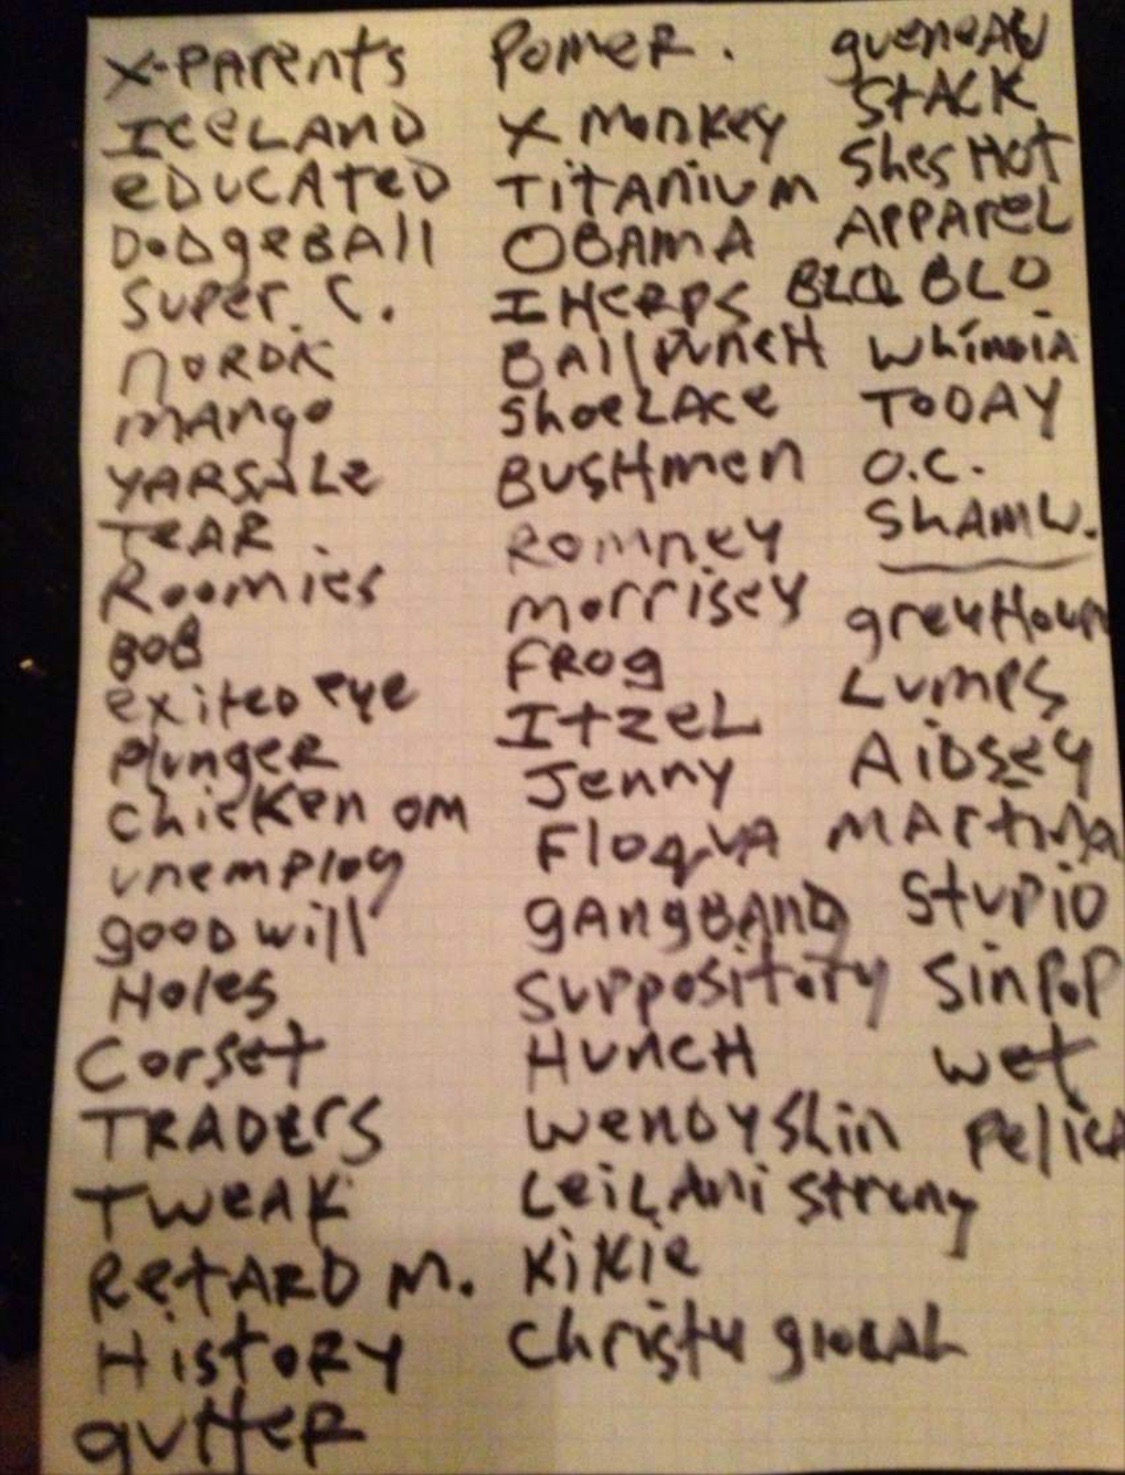 X-PARENTS
ICELAND
EDUCATED
DODGEBALL
SUPER C.
NORDK
MANGO
YARSALE
TEAR.
ROOMIES
BOB
EXITED EYE
PLUNGER
CHICKEN OM
UNEMPLOY
GOOD WILL
HOLES
CORSET
TRADERS
TWEAK
RETARD M.
HISTORY
GUTTER
POMER.
X MONKEY
TITANIUM
OBAMA
I HERPS
BALL PUNCH
SHOELACE
BUSHMEN
ROMNEY
MORRISEY
FROG
ITZEL
JENNY
GANGBANG
SUPPOSITORY
HUNCH
WENDY SLIN
LEILANI STRONG
KIKIE
CHRISTY
STACK
SHES HOT
APPAREL
BLO
TODAY
O.C.
SHAMW.
GREYHOUN
LUMPS
AIDSEY
STUPID
SINPOP
WET
PELICA